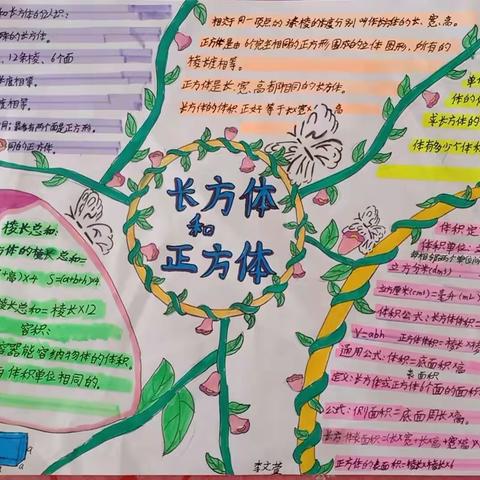 和长方体的认识:
的长方体。
12条棱、6个面
长度相等。
度相等。
有两个面是正方形。
同的正方体。
相交于同一顶点的三条棱的长度分别叫作长方体的长、宽、高。
正方体是由6个完全相同的正方形围成的立体图形,所有的
棱长相等。
正方体是长、宽、高都相同的长方体。
长方体的体积正好等于长×宽×高
体的体
单长方体的
体有多少个体积
长方体
和
正方体
棱长总和:
方体的棱长总和=
高)×4 S=(a+b+h)4
棱长总和=棱长×12
容积:
容器能容纳物体的体积。
与体积单位相同的。
体积定
体积单位:立
立方分米(dm³)
立方厘米(cm³)=毫升(mL)
体积公式:长方体体积=
V=abh 正方体体积=棱长×棱
通用公式:体积=底面积×高
表面积
定义:长方体或正方体6个面的面积
公式:侧面积=底面周长×高。
长方体表面积=(长×宽+长×高+宽×高)×
正方体的表面积=棱长×棱长×6
李文萱
a
a